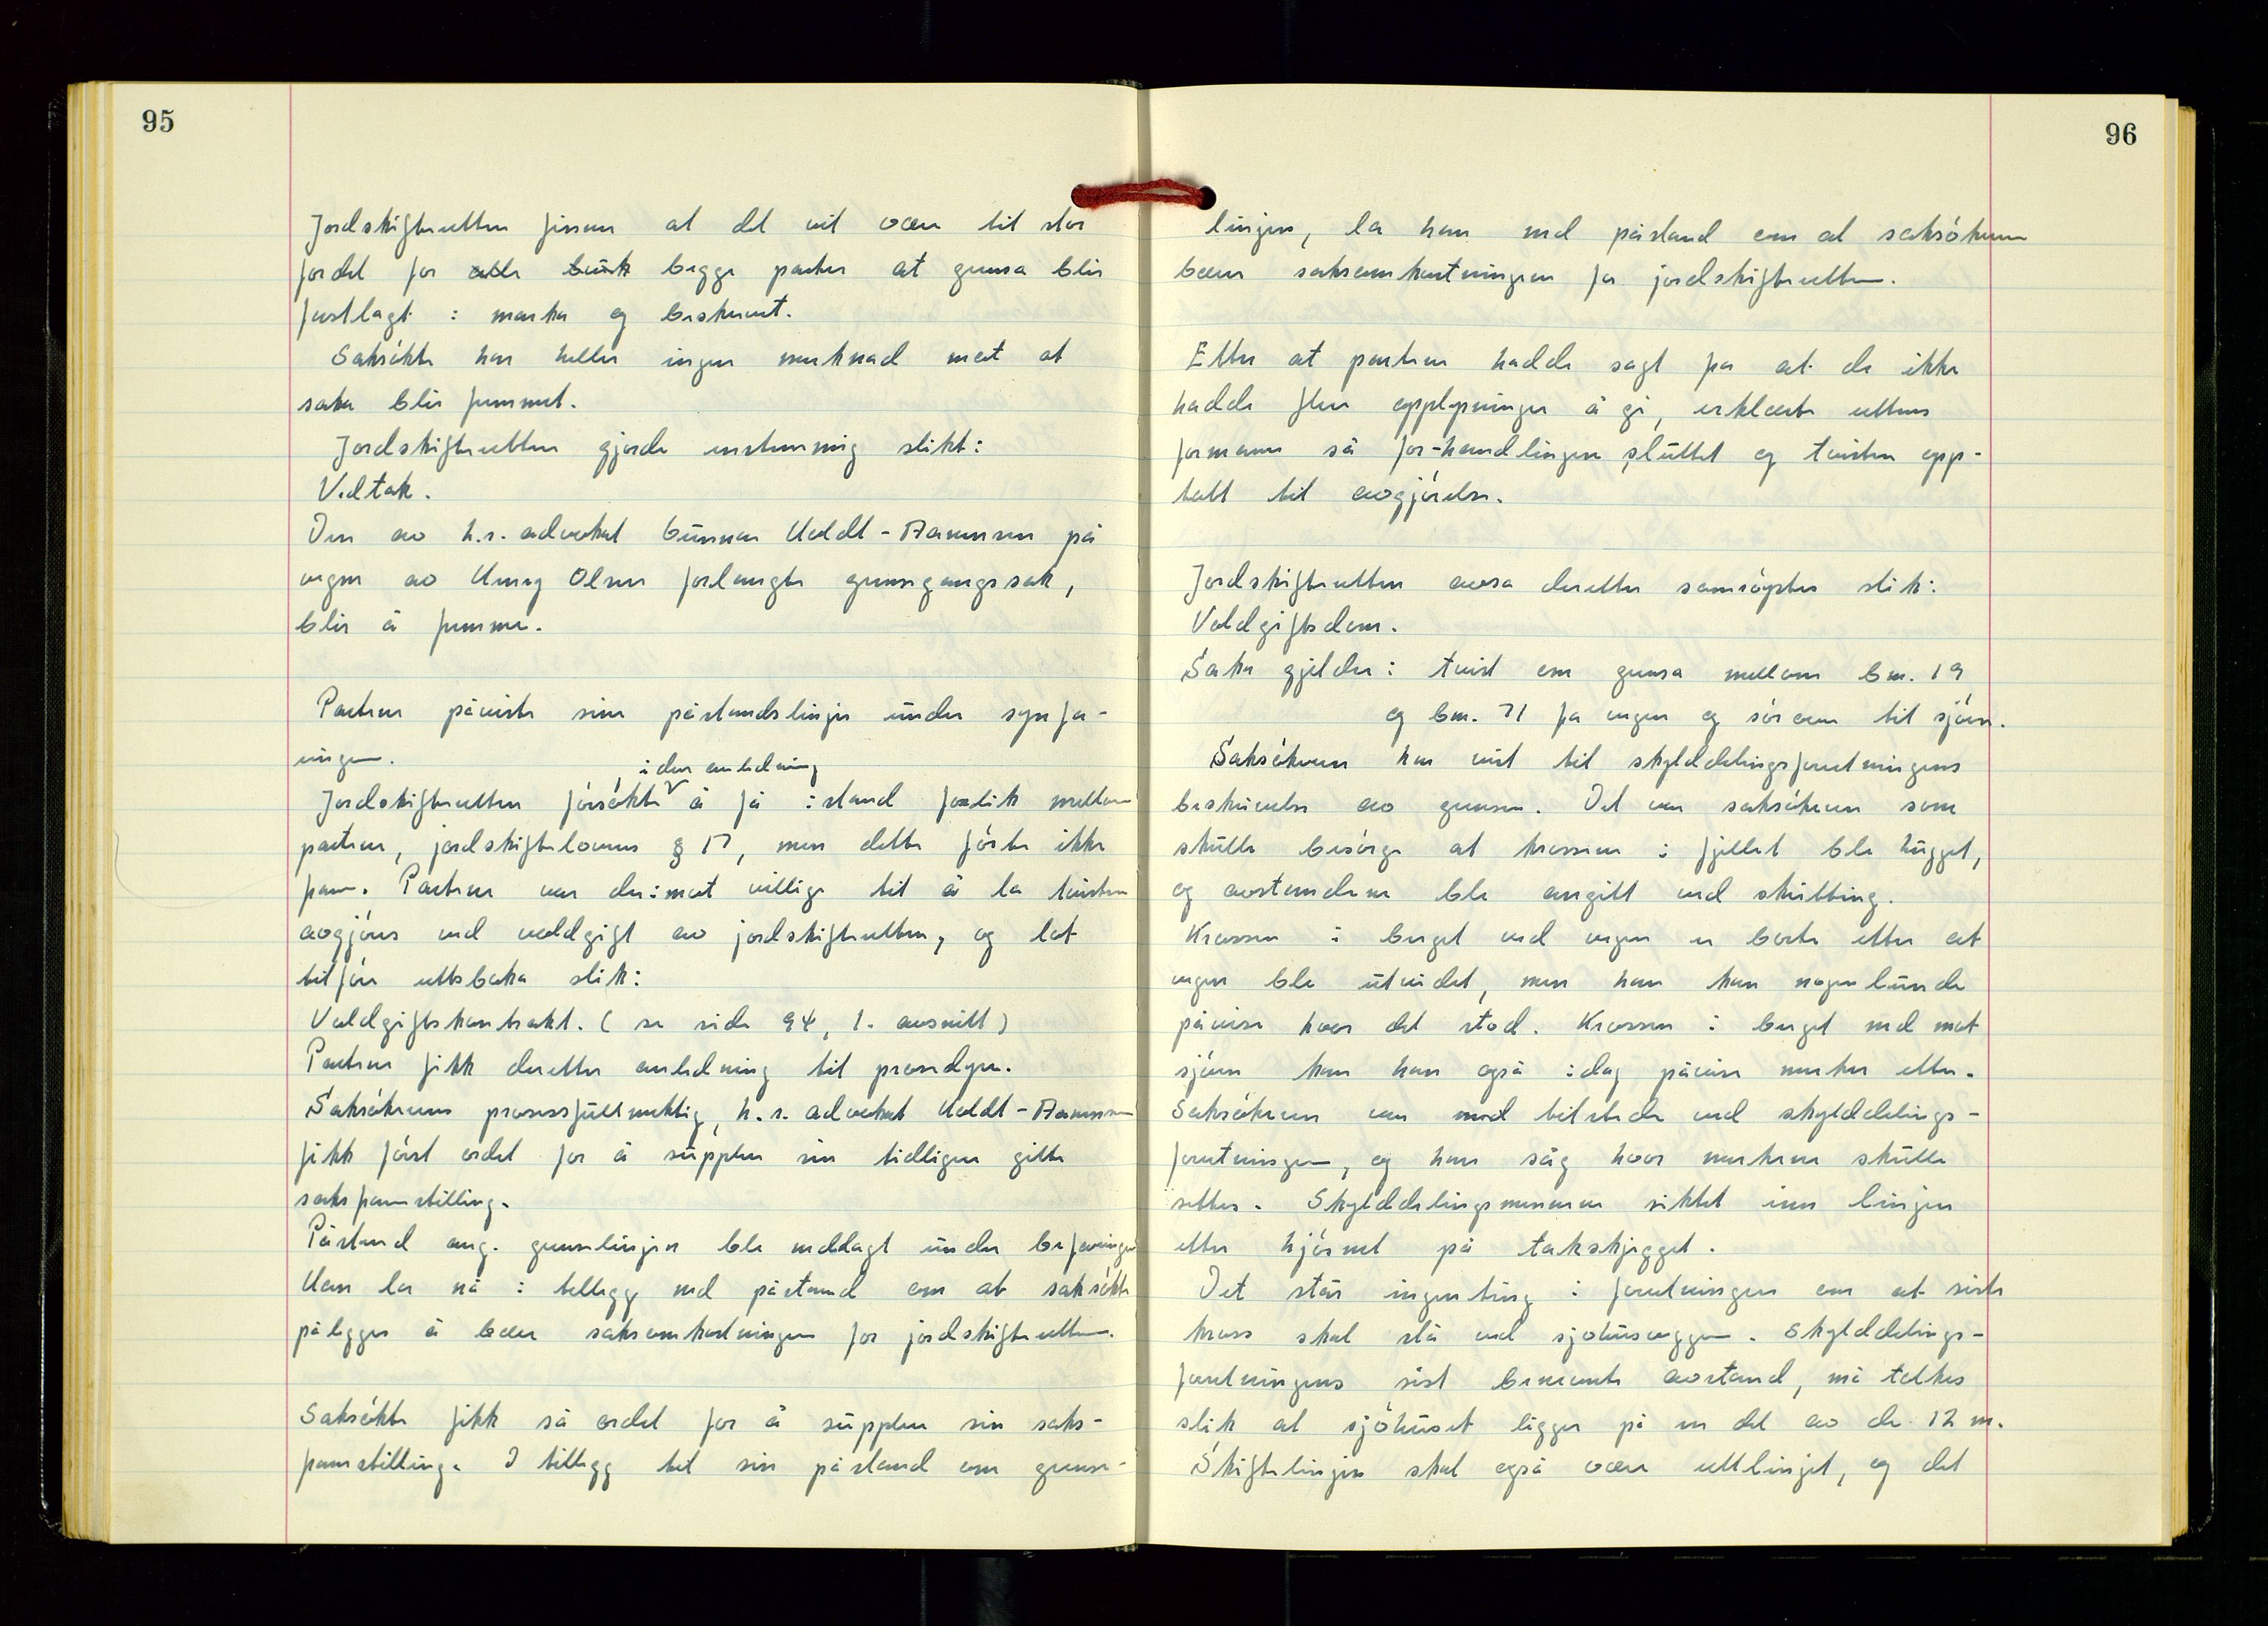 95
Jordskifteretten finner at det vil være til stor
fordel for alle bruk begge parter at grensa blir
fastlagt i marka og beskrevet.
Saksøkte har heller ingen merknad mot at
saka blir fremmet.
Jordskifteretten gjorde enstemmig slikt:
Vedtak.
Den av h.r. advokat Gunnar Heldt-Hansen på
vegne av Olsen forlangte grensegangssak,
blir å fremme.
Partene påviste sine påstandslinjer under synfa-
ringen.
i den anledning
Jordskifteretten forsøkte å få istand forlik mellom
partene, jordskiftelovens § 17, men dette førte ikke
fram. Partene var derimot villige til å la tvisten
avgjøres ved voldgift av jordskifteretten, og lot
tilføre rettsboka slik:
Voldgiftskontrakt. (se side 94, 1. avsnitt)
Partene fikk deretter anledning til prosedyre.
Saksøkerens prosessfullmektig, h.r. advokat Heldt-Hansen
fikk først ordet for å supplere sin tidligere gitte
saksframstilling.
Påstand ang. grenselinjen ble nedlagt under befaringen
Han la nå i tillegg ned påstand om at saksøkte
pålegges å bære saksomkostningene for jordskifteretten.
Saksøkte fikk så ordet for å supplere sin saks-
framstilling. I tillegg til sin påstand om grense-
96
linjen, la han ned påstand om at saksøkeren
bærer saksomkostningene for jordskifteretten.
Etter at partene hadde sagt fra at de ikke
hadde flere opplysninger å gi, erklærte rettens
formann så for-handlingene sluttet og tvisten opp-
tatt til avgjørelse.
Jordskifteretten avsa deretter samrøystes slik:
Voldgiftsdom.
Saka gjelder: tvist om grensa mellom bnr. 19
og bnr. 71 fra vegen og sørover til sjøen.
Saksøkeren har vist til skylddelingsforretningens
beskrivelse av grensen. Det var saksøkeren som
skulle besørge at krossene i fjellet ble hugget,
og avstandene ble angitt ved skritting.
Krossen i berget ved vegen er borte etter at
vegen ble utvidet, men han kan nogenlunde
påvise hvor det stod. Krossen i berget ned mot
sjøen kan han også idag påvise merker etter.
Saksøkeren var med tilstede ved skylddelings-
forretningen, og han såg hvor merkene skulle
settes. Skylddelingsmennene siktet inn linjen
etter hjørnet på takskjegget.
Det står ingenting i forretningen om at siste
kross skal stå ved sjøhusveggen. Skylddelings-
forretningens sist benevnte avstand, må tolkes
slik at sjøhuset ligger på en del av de 12 m.
Skiftelinjen skal også være rettlinjet, og det